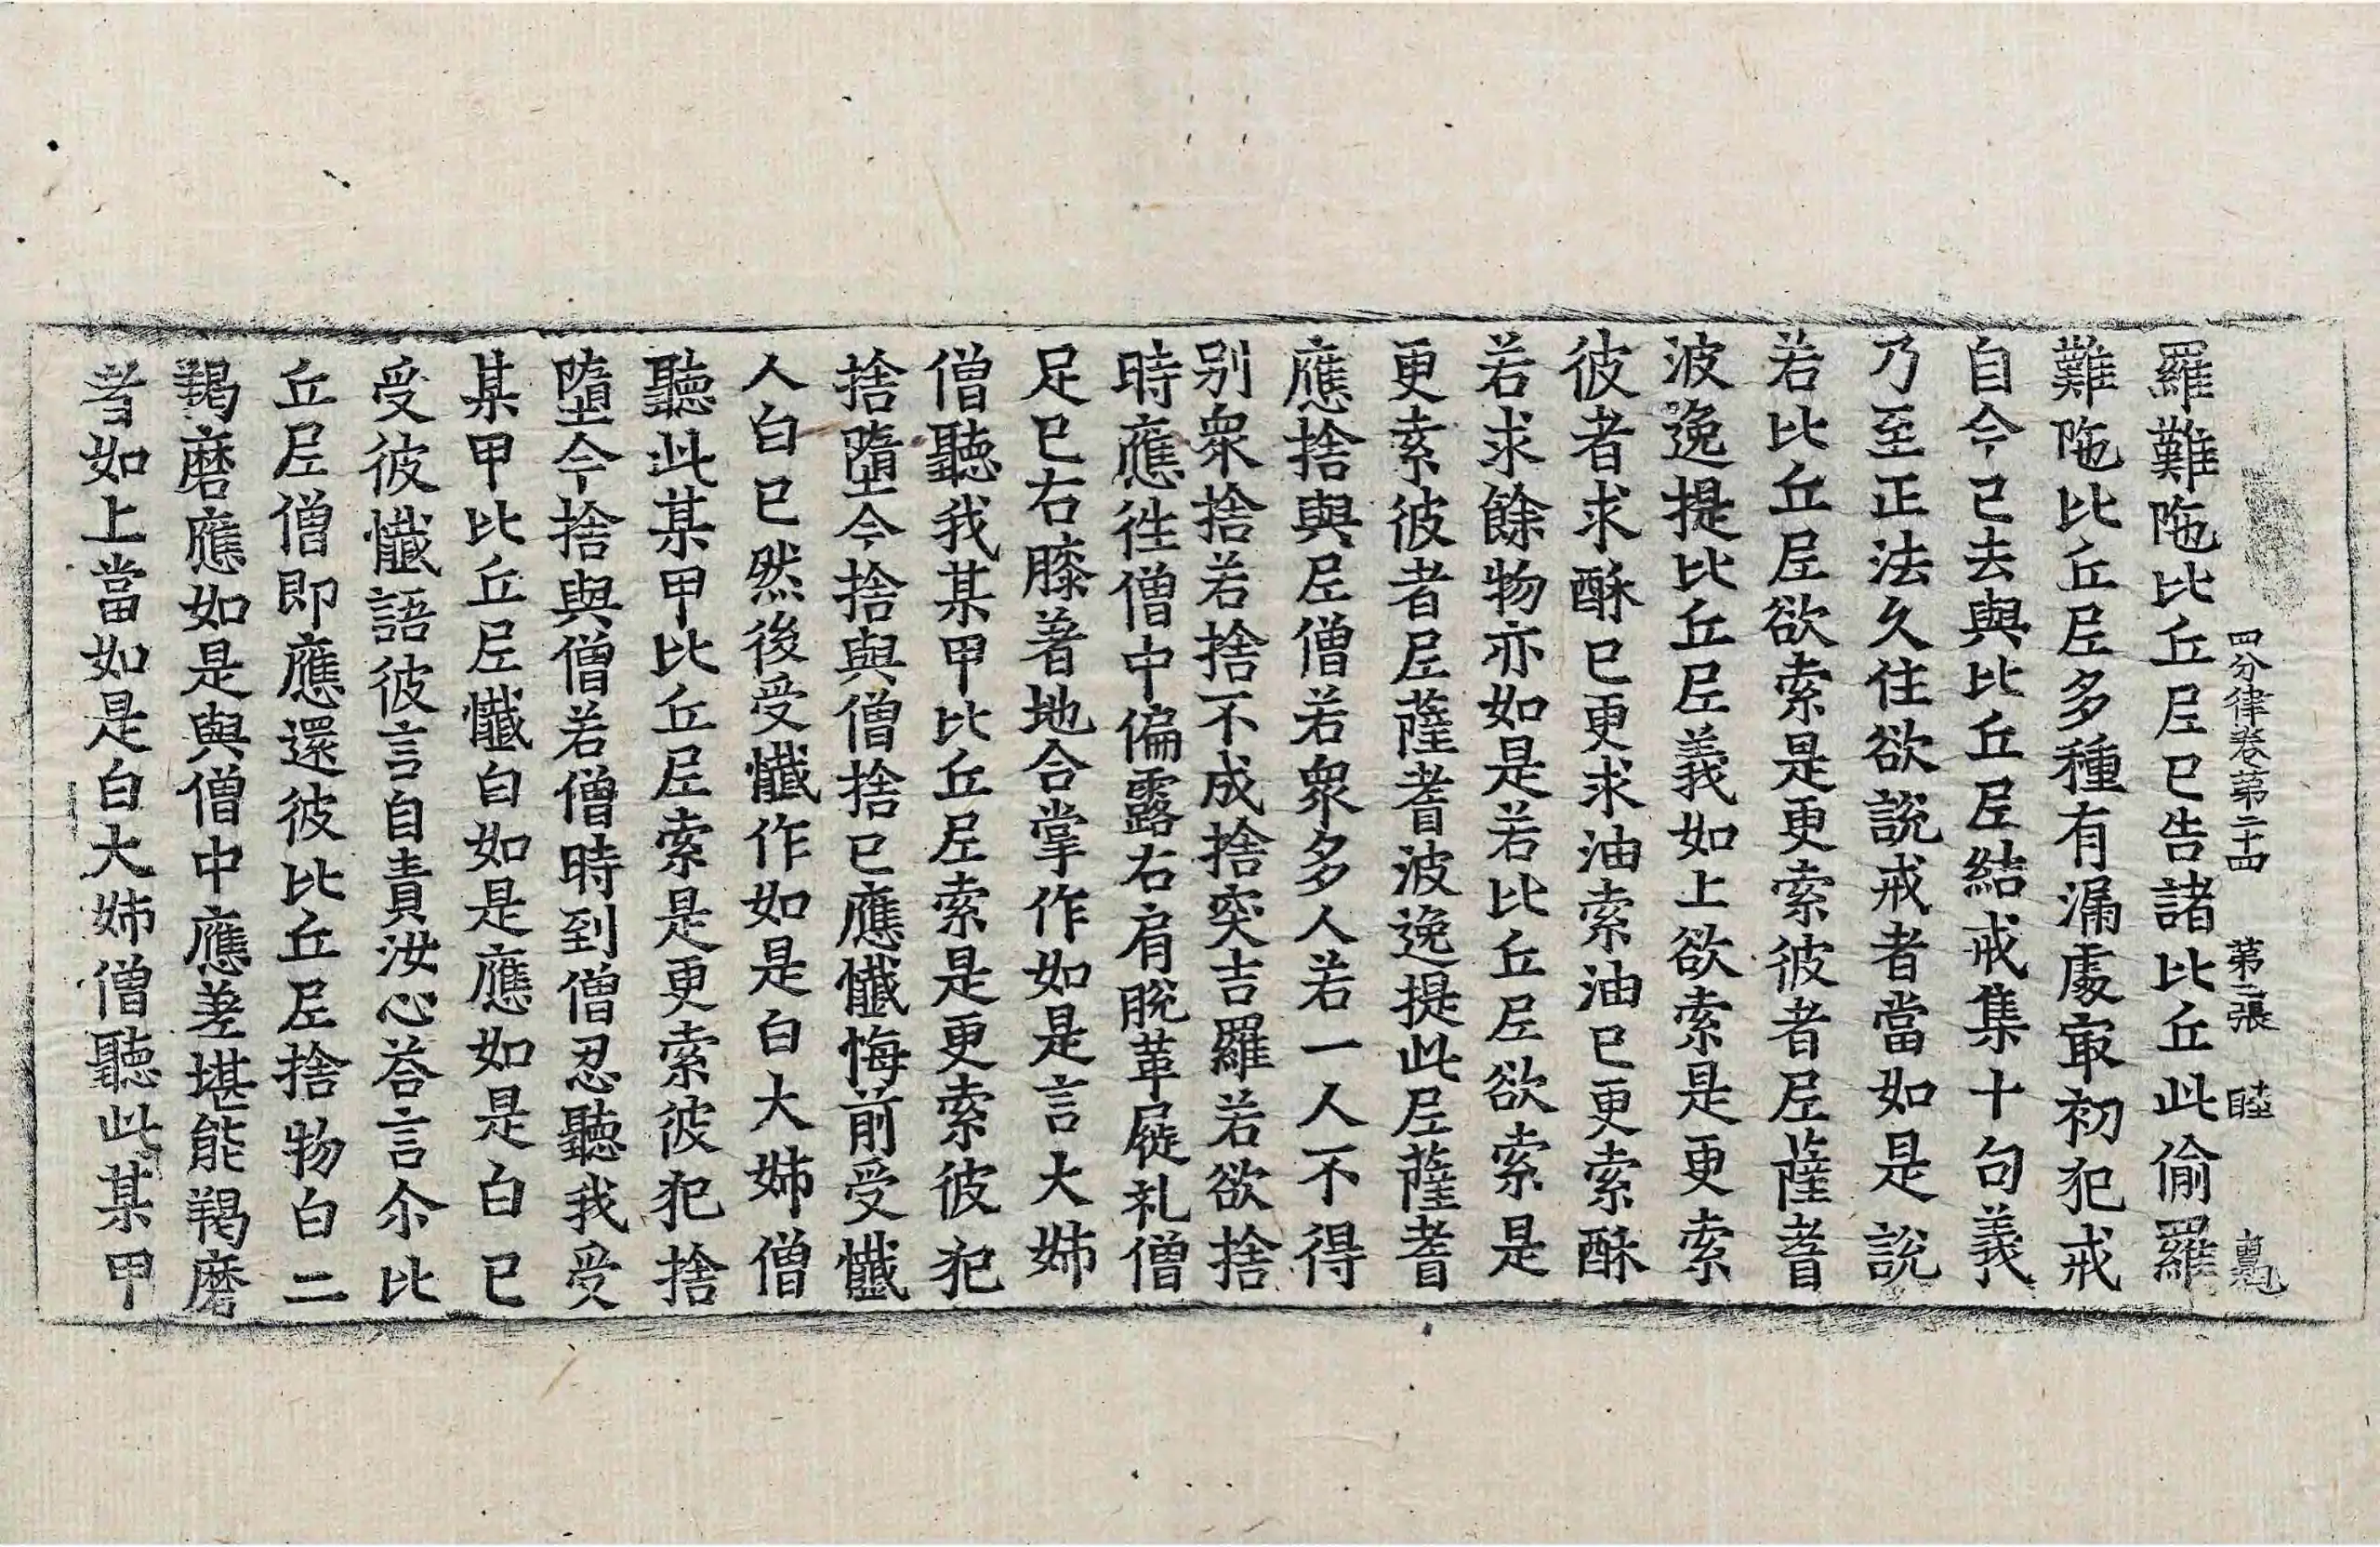 四分律卷第二十四　第二張　睦
羅難陁比丘尼已告諸比丘此偷羅
難陁比丘尼多種有漏處㝡初犯戒
自今已去與比丘尼結戒集十句義
乃至正法久住欲說戒者當如是說
若比丘尼欲索是更索彼者尼薩耆
波逸提比丘尼義如上欲索是更索
彼者求酥已更求油索油已更索酥
若求餘物亦如是若比丘尼欲索是
更索彼者尼薩耆波逸提此尼薩耆
應捨與尼僧若衆多人若一人不得
别衆捨若捨不成捨突吉羅若欲捨
時應徃僧中偏露右肩脫革屣礼僧
足已右膝著地合掌作如是言大姊
僧聽我某甲比丘尼索是更索彼犯
捨墮今捨與僧捨已應懺悔前受懺
人白已然後受懺作如是白大姊僧
聽此某甲比丘尼索是更索彼犯捨
墮今捨與僧若僧時到僧忍聽我受
某甲比丘尼懺白如是應如是白已
受彼懺語彼言自責汝心荅言尒比
丘尼僧即應還彼比丘尼捨物白二
羯磨應如是與僧中應差堪能羯磨
者如上當如是白大姊僧聽此某甲